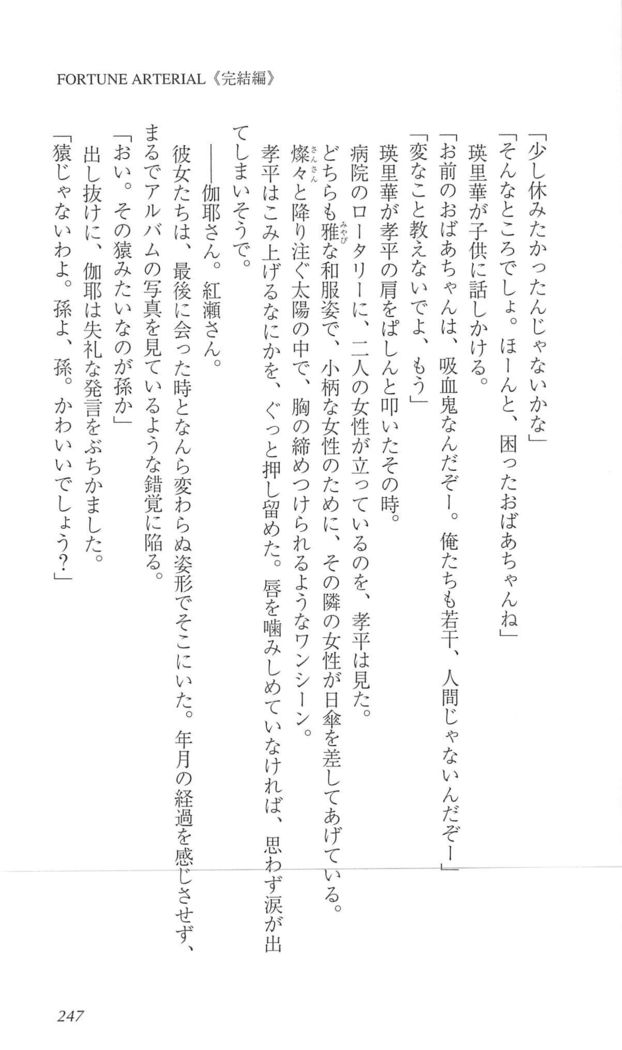 FORTUNE ARTERIAL《完結編》
「少し休みたかったんじゃないかな」
「そんなところでしょ。ほーんと、困ったおばあちゃんね」
瑛里華が子供に話しかける。
「お前のおばあちゃんは、吸血鬼なんだぞー。俺たちも若干、人間じゃないんだぞー」
「変なこと教えないでよ、もう」
瑛里華が孝平の肩をぱしんと叩いたその時。
病院のロータリーに、二人の女性が立っているのを、孝平は見た。
どちらも雅な和服姿で、小柄な女性のために、その隣の女性が日傘を差してあげている。
燦々と降り注ぐ太陽の中で、胸の締めつけられるようなワンシーン。
孝平はこみ上げるなにかを、ぐっと押し留めた。唇を噛みしめていなければ、思わず涙が出
てしまいそうで。
――伽耶さん。紅瀬さん。
彼女たちは、最後に会った時となんら変わらぬ姿形でそこにいた。年月の経過を感じさせず、
まるでアルバムの写真を見ているような錯覚に陥る。
「おい。その猿みたいなのが孫か」
出し抜けに、伽耶は失礼な発言をぶちかました。
「猿じゃないわよ。孫よ、孫。かわいいでしょう？」
247